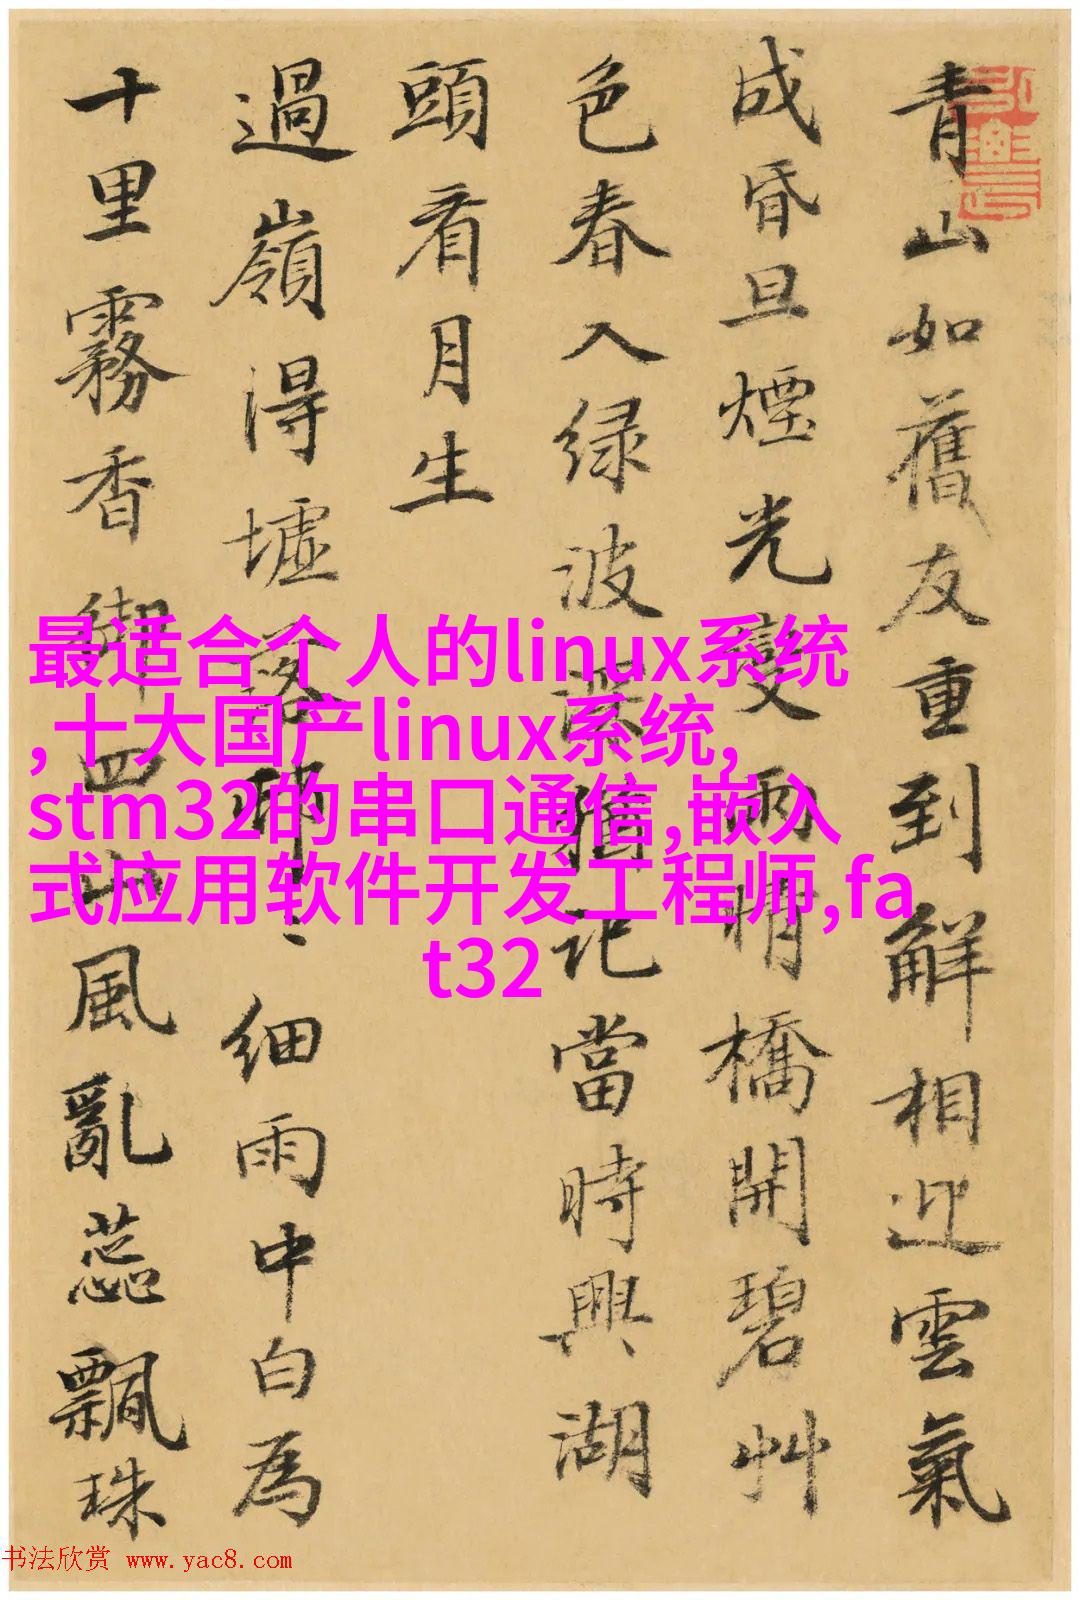 青山如舊友重到解相迎雲氣
成昏旦煙光變雨晴橋開碧艸
色春入緑波猶記當時興湖
頭看月生
過嶺得墟落細雨中白為
十里霧香四山風亂蕊飄珠
最适合个人的linux系统
,十大国产linux系统,
stm32的串口通信,嵌入
式应用软件开发工程师,fa
t32
书法欣赏 www.yac8.com